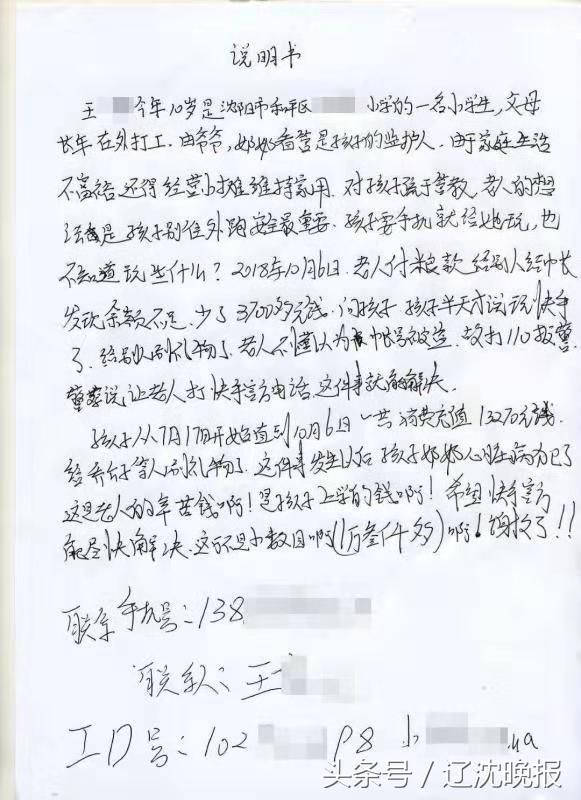 说明书
王 今年10岁是沈阳市和平区 小学的一名小学生，父母
长年在外打工，由爷爷，奶奶看管是孩子的监护人。由于家庭生活
不富裕还得经营小摊维持家用。对孩子疏于管教，老人的想
法是孩子别往外跑安全最重要。孩子要手机就给他玩，也
不知道玩些什么？2018年10月6日，老人付粮款给别人经
发现余额不足，少了3700多元钱，问孩子 孩子半天才说玩快手
了，给别人刷礼物了。老人不懂以为 被盗，故打110报警，
警察说让老人打快手官方电话，这件事就能解决。
孩子从7月17日开始直到10月6日一共消费充值13270元钱
给 等人刷礼物了，这件事发生以后 孩子奶奶心脏病都犯了
这是老人的辛苦钱啊！是孩子上学的钱啊！希望快手官方
能尽快解决，这可不是小数目啊(1万叁仟多)啊！谢谢了！！
联系手机号：138
联系人：王
ID号：102 P8 小 na
头条号 / 辽沈晚报